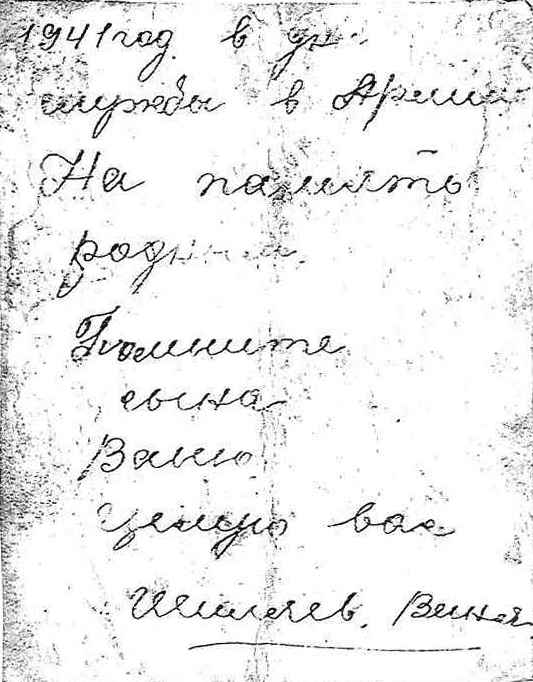 1941 год. в дни
службы в Армии
На память
родным.
Помните
сына
Ваню
Целую вас
Ваня